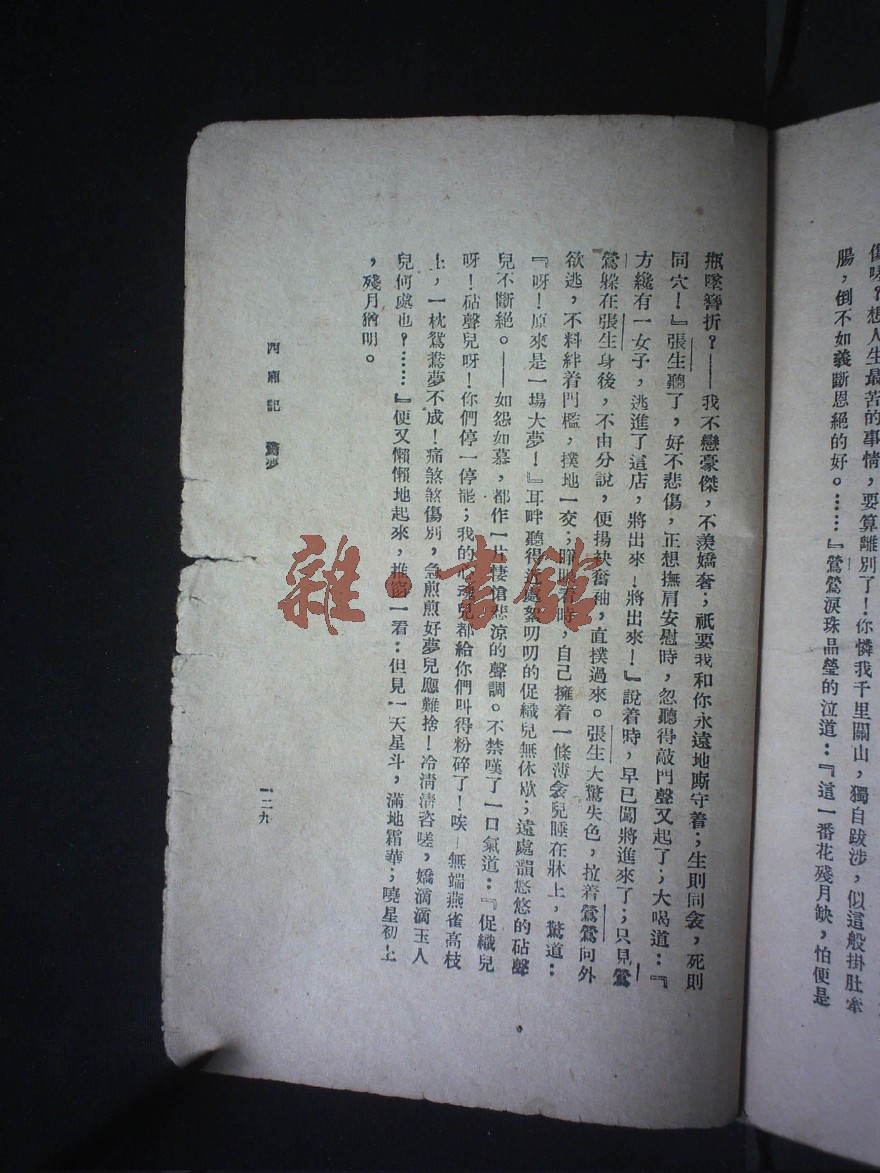 傷嗟？想人生最苦的事情，要算離別了！你憐我千里關山，獨自跋涉，似這般掛肚牽
腸，倒不如義斷恩絕的好。……』鶯鶯淚珠晶瑩的泣道：『這一番花殘月缺，怕便是
瓶墜簪折？——我不戀豪傑，不羨嬌奢；祇要我和你永遠地廝守着；生則同衾，死則
同穴！』張生聽了，好不悲傷，正想撫肩安慰時，忽聽得敲門聲又起了；大喝道：『
方纔有一女子，逃進了這店，將出來！將出來！』說着時，早已闖將進來了；只見鶯
鶯躲在張生身後，不由分說，便揚袂奮袖，直撲過來。張生大驚失色，拉着鶯鶯向外
欲逃，不料絆着門檻，撲地一交；睜眼看時，自己擁着一條薄衾兒睡在牀上，驚道：
『呀！原來是一場大夢！』耳畔聽得近處絮叨叨的促織兒無休歇；遠處韻悠悠的砧聲
兒不斷絕。——如怨如慕，都作一片悽愴悲涼的聲調。不禁嘆了一口氣道：『促織兒
呀！砧聲兒呀！你們停一停罷；我的心魂兒都給你們叫得粉碎了！唉—無端燕雀高枝
上，一枕鴛鴦夢不成！痛煞煞傷別，急煎煎好夢兒應難捨！冷清清咨嗟，嬌滴滴玉人
兒何處也？……』便又懶懶地起來，推窗一看：但見一天星斗，滿地霜華；曉星初上
，殘月猶明。
西廂記 驚夢
一二九
雜·書館